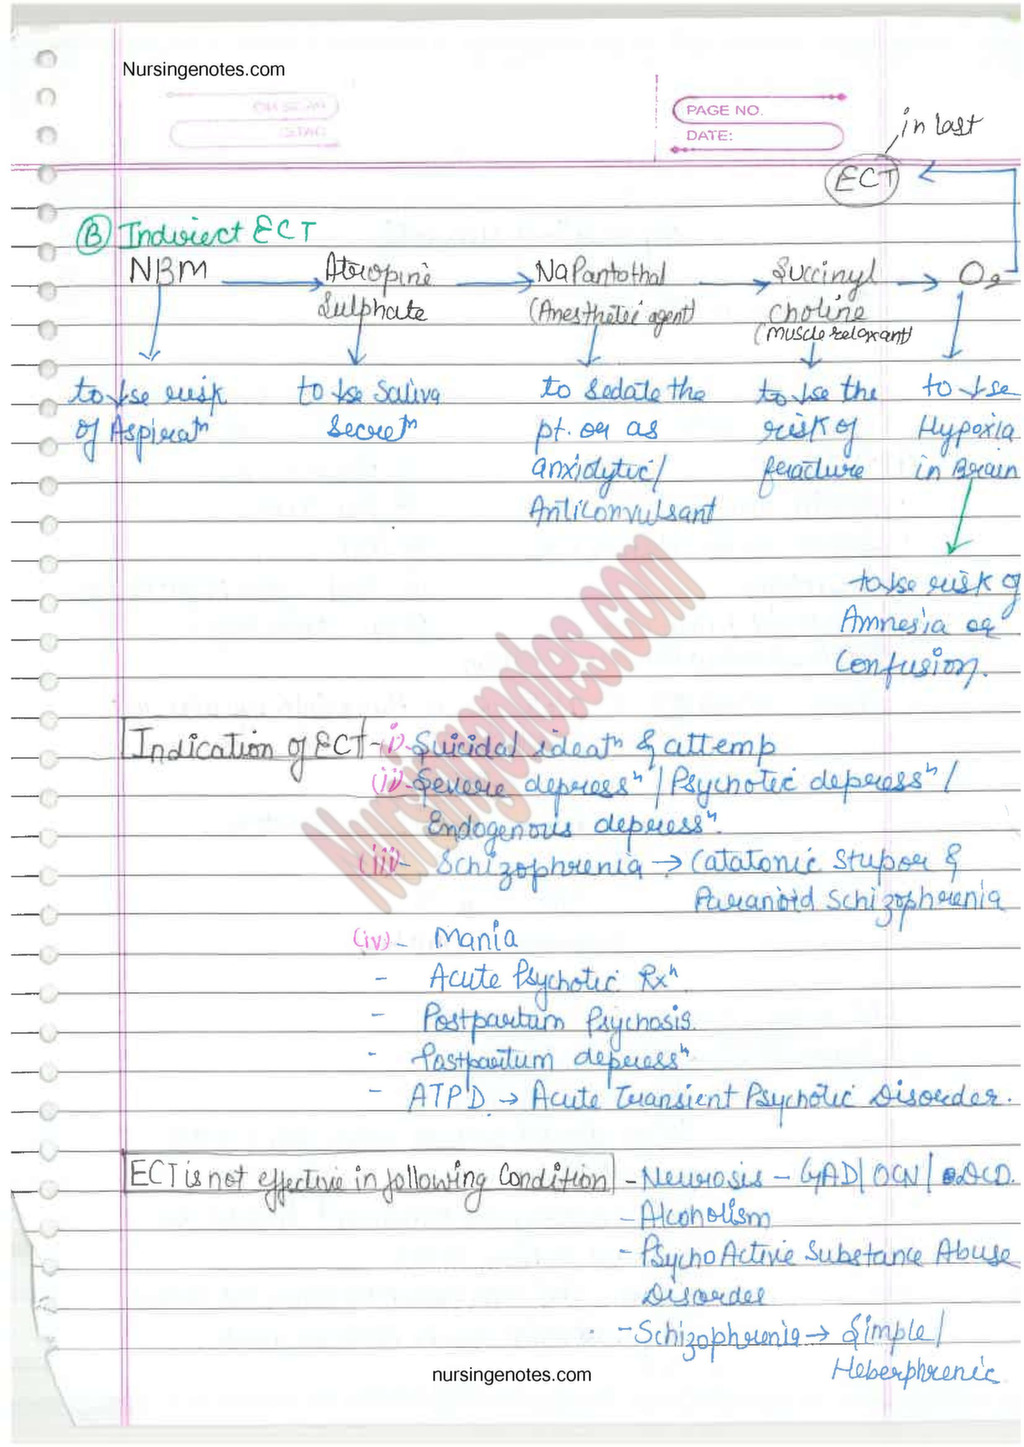 Nursingenotes.com
PAGE NO.
DATE:
in last
ECT
(B) Indirect ECT
NBM → Atropine Sulphate → Na Pantothal (Anesthetic agent) → Succinyl choline (muscle relaxant) → O2
to ↓se risk of Aspiratn
to ↓se Saliva Secretn
to Sedate the pt. or as anxiolytic/ Anticonvulsant
to ↓se the risk of feracture
to ↓se Hypoxia in Brain
to ↓se risk of
Amnesia or
Confusion.
Nursingenotes.com
Indication of ECT - i)- Suicidal ideatn & attemp
(ii)- Severe depressn / Psychotic depressn /
Endogenous depressn.
(iii)- Schizophrenia → Catatonic Stupor &
Paranoid Schizophrenia
(iv)- Mania
- Acute Psychotic Rxn.
- Postpartum Psychosis.
- Postpartum depressn
- ATPD → Acute Transient Psychotic Disorder.
ECT is not effective in following Condition - Neurosis - GAD/ OCN/ OCD.
- Alcoholism
- Psycho Active Substance Abuse
Disorder
- Schizophrenia → Simple/
Heberphrenic
nursingenotes.com